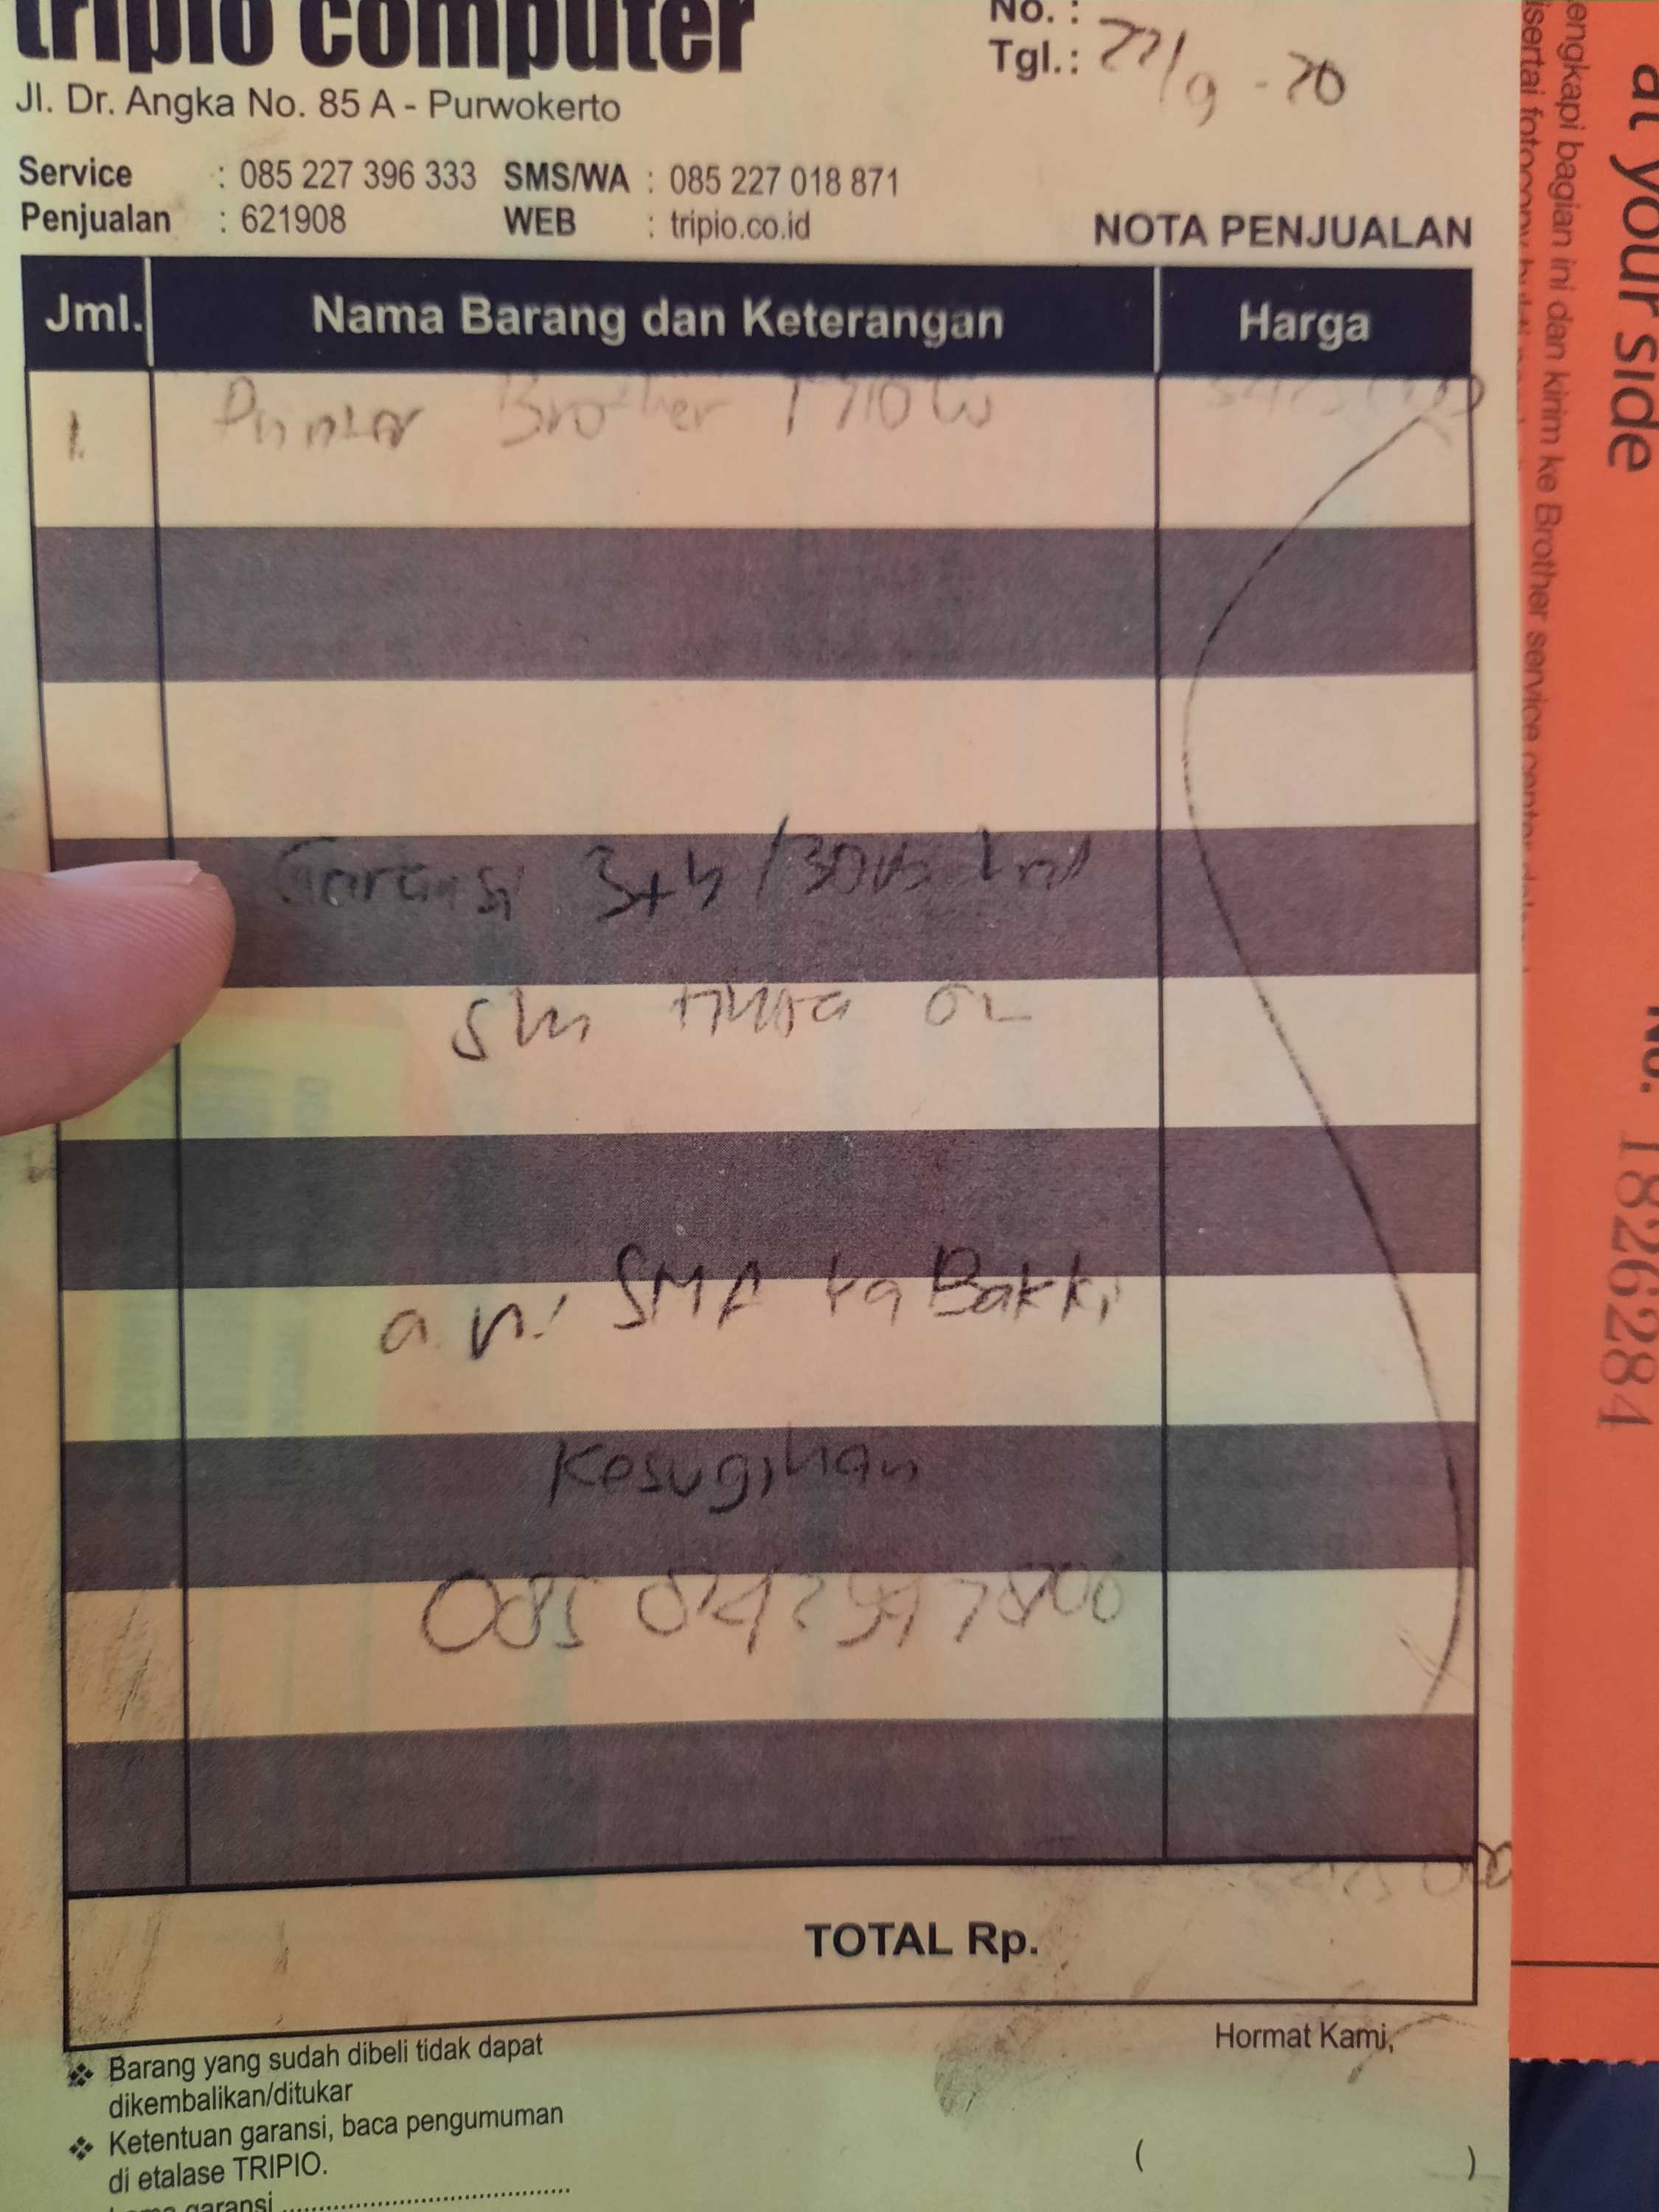 tripio computer
Jl. Dr. Angka No. 85 A - Purwokerto
No. :
Tgl.: 22/9 - 20
Service : 085 227 396 333 SMS/WA : 085 227 018 871
Penjualan : 621908 WEB : tripio.co.id
NOTA PENJUALAN
Jml. Nama Barang dan Keterangan Harga
1. Printer Brother T710W
Garansi 3th/30rb
a.n. SMA Ya Bakki
Kesugihan
TOTAL Rp.
Hormat Kami,
( )
❖ Barang yang sudah dibeli tidak dapat
dikembalikan/ditukar
❖ Ketentuan garansi, baca pengumuman
di etalase TRIPIO.
garansi
at your side
engkapi bagian ini dan kirim ke Brother service center
isertai fotocopy
No. 1826284